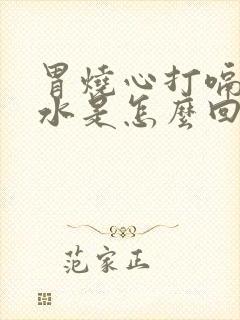 胃燒心打嗝
水是怎麼回
范家正